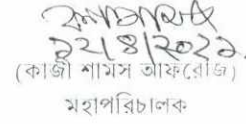 ১২/৪/২০২১
(কাজী শামস আফরোজ)
মহাপরিচালক